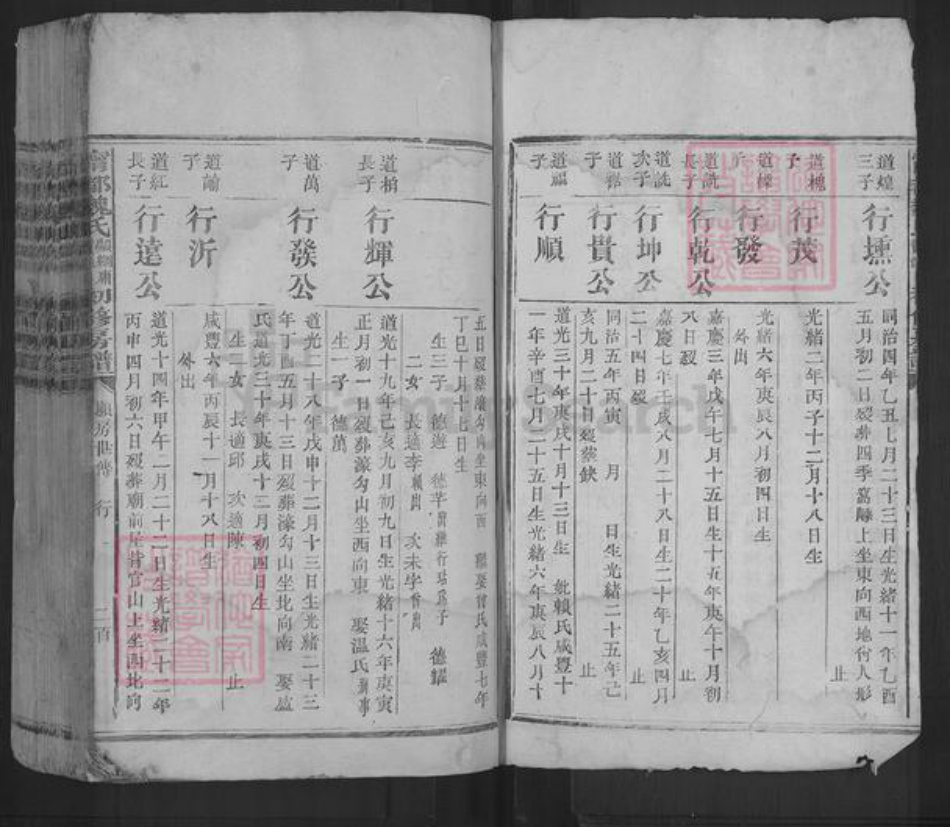 道煌
三子
行壎公
同治四年乙丑七月二十三日生光緒十一年乙酉
五月初二日歿葬四季窩陲上坐東向西地何人形
止
道槐
子
行茂
光緒二年丙子十二月十八日生
道標
子
行發
光緒六年庚辰八月初四日生
外出
道詵
長子
行乾公
嘉慶三年戊午七月十五日生十五年庚午十月初
八日歿
止
道詵
次子
行坤公
嘉慶七年壬戌八月二十八日生二十年乙亥四月
二十四日歿
止
子
行貴公
同治五年丙寅 月 日生光緒二十五年己
亥九月二十日歿葬缺
止
道福
子
行順
道光三十年庚戌十月十三日生 娶賴氏咸豐十
一年辛酉七月二十五日生光緒六年庚辰八月十
五日歿葬 勾山坐東向西 娶曾氏咸豐七年
丁巳十月十七日生
生三子 德遊 德 德耀
二女 長適李 次未字
道梢
長子
行輝公
道光十九年己亥九月初九日生光緒十六年庚寅
正月初一日歿葬濠勾山坐西向東 娶温氏
生一子 德萬
道萬
子
行發公
道光二十八年戊申十二月十三日生光緒二十三
年丁酉五月十三日歿葬濠勾山坐北向南 娶盧
氏道光三十年庚戌十二月初四日生
生二女 長適邱 次適陳 止
道諭
子
行沂
咸豐六年丙辰十一月十八日生
外出
道紅
長子
行遠公
道光十四年甲午二月二十二日生光緒二十二年
丙申四月初六日歿葬廟前屋背官山上坐西北向
寧都魏氏 初修房譜
房世傳 行 二百